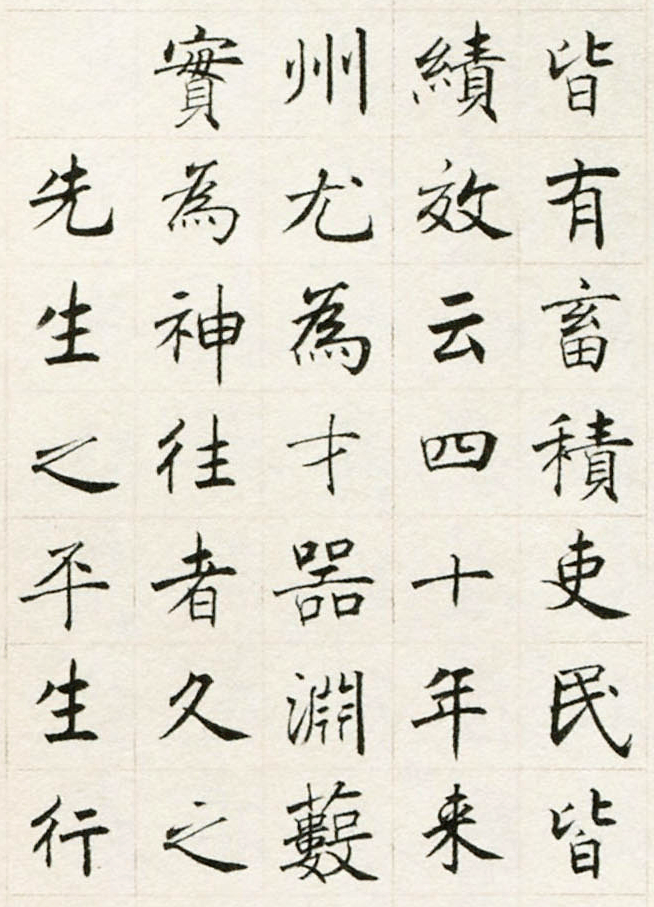 皆有畜積吏民皆
績效云四十年来
州尤為才器淵藪
實為神往者久之
先生之平生行